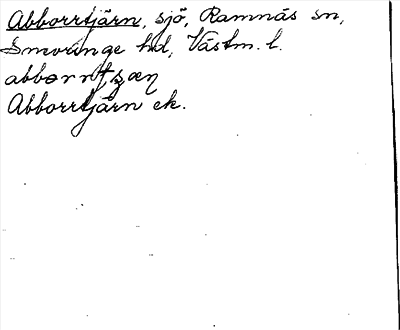 Abborrtjärn, sjö, Ramnäs sn,
Snevringe hd, Västm. l.
Abborrtjärn ek.